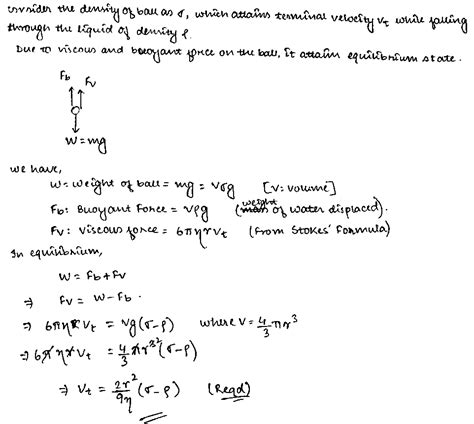 consider the density of ball as σ, which attains terminal velocity Vt while falling
through the liquid of density ρ.
Due to viscous and buoyant force on the ball, it attain equilibrium state.
Fb Fv
W=mg
we have,
W: weight of ball = mg = Vσg [V: volume]
Fb: Buoyant Force = Vρg (weight of water displaced).
Fv: viscous force = 6πηrVt (From Stokes' Formula)
In equilibrium,
W = Fb + Fv
⇒ Fv = W - Fb.
⇒ 6πηrVt = Vg(σ-ρ) where V = 4/3 πr³
⇒ 6πηrVt = 4/3 πr³(σ-ρ)
⇒ Vt = 2r²/9η (σ-ρ) (Reqd)